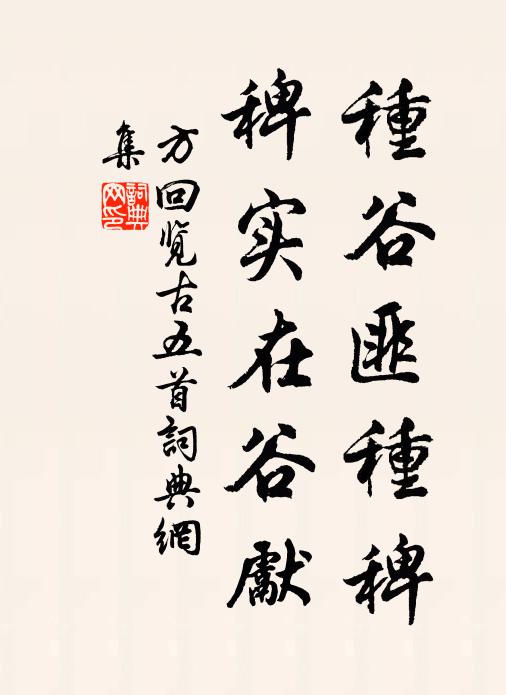 種谷匪種稗
稗实在谷獻
方回览古五首詞典網
集
詞典
网印